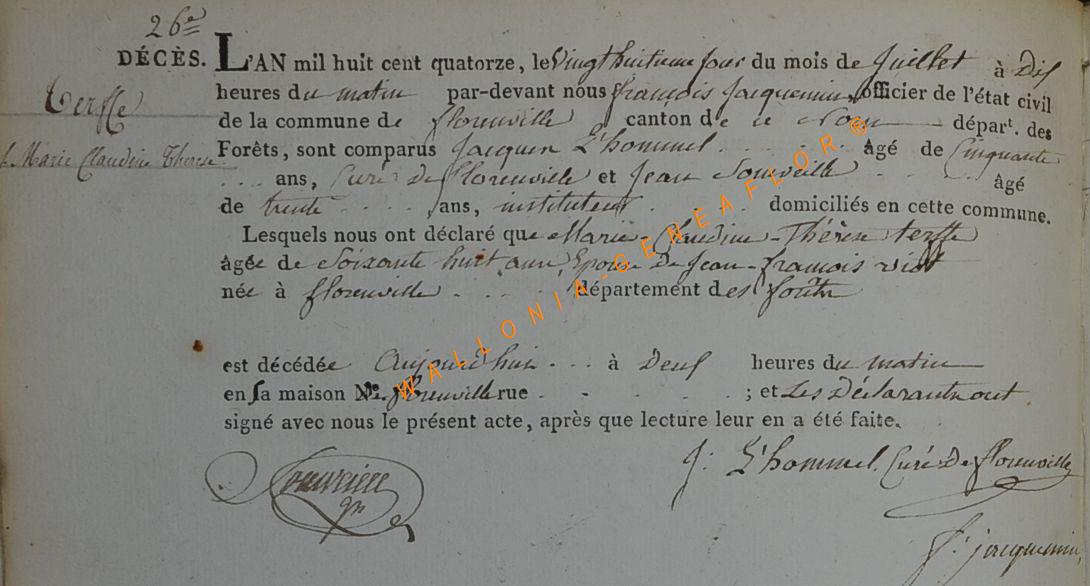 26e
DÉCÈS.
Terffe
Marie Claudine Therese
L'AN mil huit cent quatorze, le Vingthuitieme jour du mois de Juillet à Dix
heures du matin par-devant nous françois Jacquemin officier de l'état civil
de la commune de florenville canton de ce Nom départ. des
Forêts, sont comparus Jacques L'hommel âgé de Cinquante
ans, Curé De florenville et Jean âgé
de trente ans, instituteur domiciliés en cette commune.
Lesquels nous ont déclaré que Marie-Claudine-Thérèse terffe
âgée de Soixante huit ans, Epouse De Jean-françois
née à florenville département des forêts
est décédée Aujourd'hui à Deux heures du matin
en sa maison No. florenville rue ; et Les Déclarants ont
signé avec nous le présent acte, après que lecture leur en a été faite.
J: L'hommel. Curé De florenville
f: jacquemin
WALLONIA-GENEAFLOR®